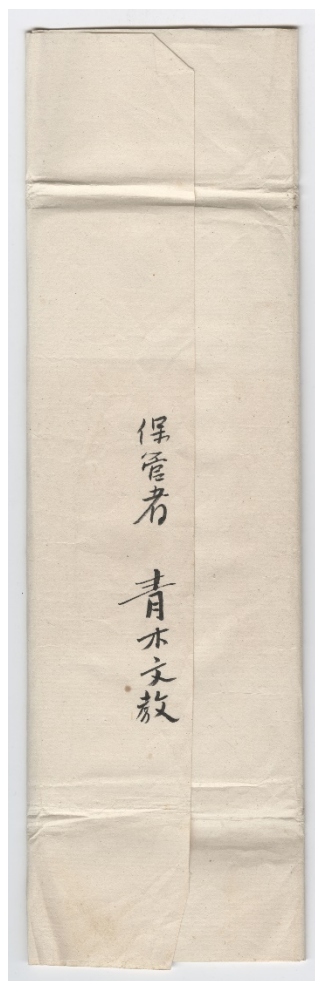 保管者　青木文教